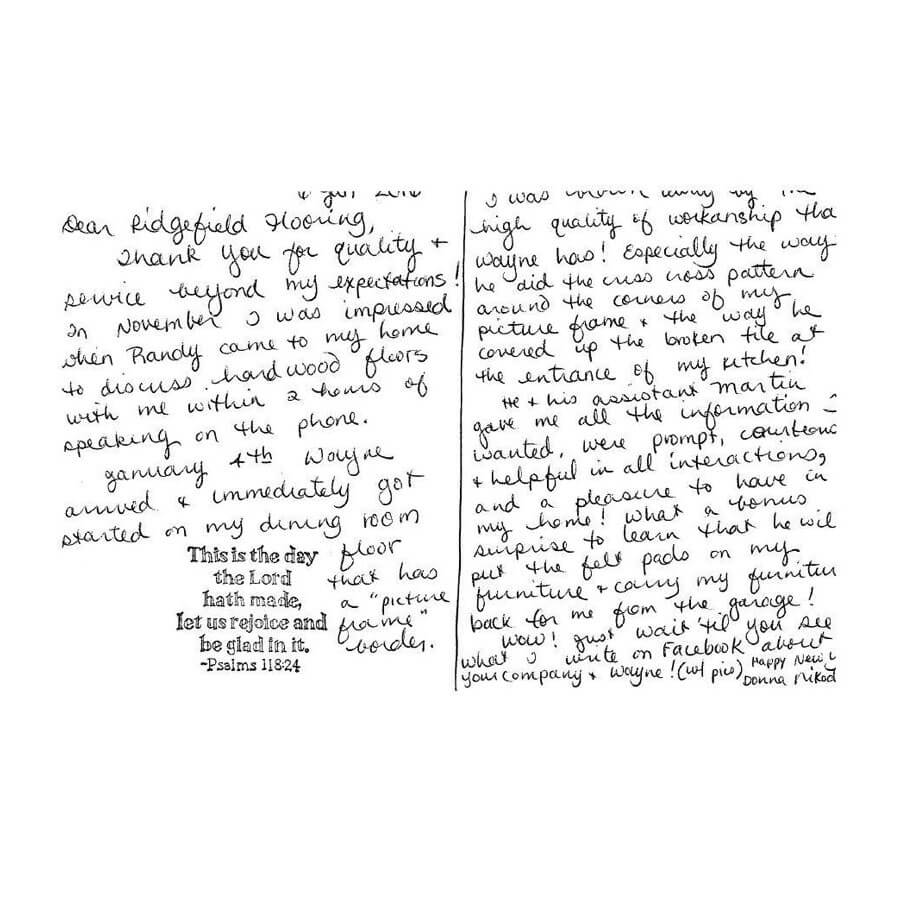 Dear Ridgefield Flooring,
Thank you for quality +
service beyond my expectations!
In November I was impressed
when Randy came to my home
to discuss hardwood floors
with me within 2 hours of
speaking on the phone.
January 4th Wayne
arrived & immediately got
started on my dining room
floor
that has
a "picture
frame"
border.
This is the day
the Lord
hath made,
let us rejoice and
be glad in it.
-Psalms 118:24
I was blown away by
high quality of workanship tha
Wayne has! Especially the way
he did the criss cross pattern
around the corners of my
picture frame + the way he
covered up the broken tile at
the entrance of my kitchen!
He + his assistant Martin
gave me all the information
wanted, were prompt, courteous
+ helpful in all interactions,
and a pleasure to have in
my home! What a bonus
surprise to learn that he wil
put the felt pads on my
furniture + carry my furnitur
back for me from the garage!
Wow! Just wait 'til you see
what I write on Facebook about
your company + Wayne! (w/ pics)
Happy New
Donna Nikod